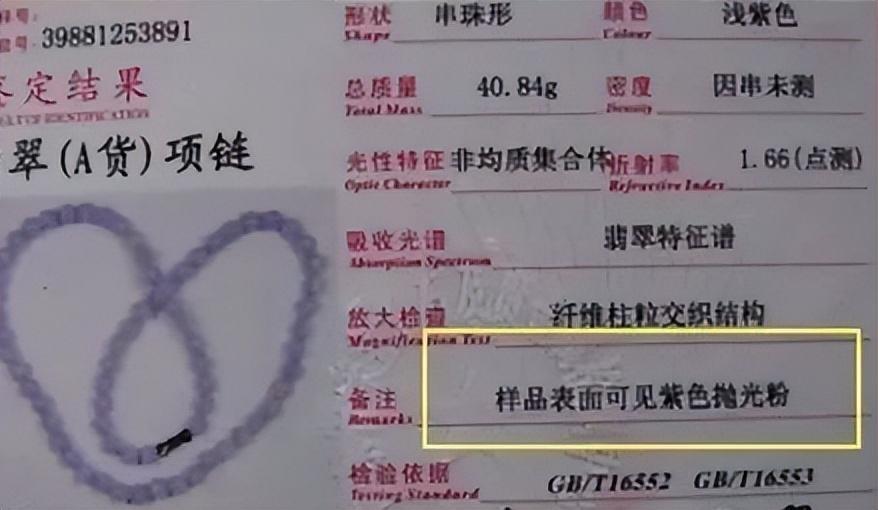 39881253891
定结果
翠(A货)项链
形状 串珠形 颜色 浅紫色
Shape Colour
总质量 40.84g 密度 因串未测
Total Mass Density
光性特征 非均质集合体 折射率 1.66(点测)
Optic Character Refractive Index
吸收光谱 翡翠特征谱
Absorption Spectrum
放大检查 纤维柱粒交织结构
Magnification Test
备注 样品表面可见紫色抛光粉
Remarks
检验依据 GB/T16552 GB/T16553
Testing Standard